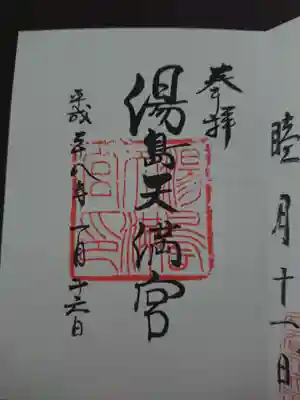 睦月十一日
奉拝
湯島天満宮
平成二十八年一月二十六日